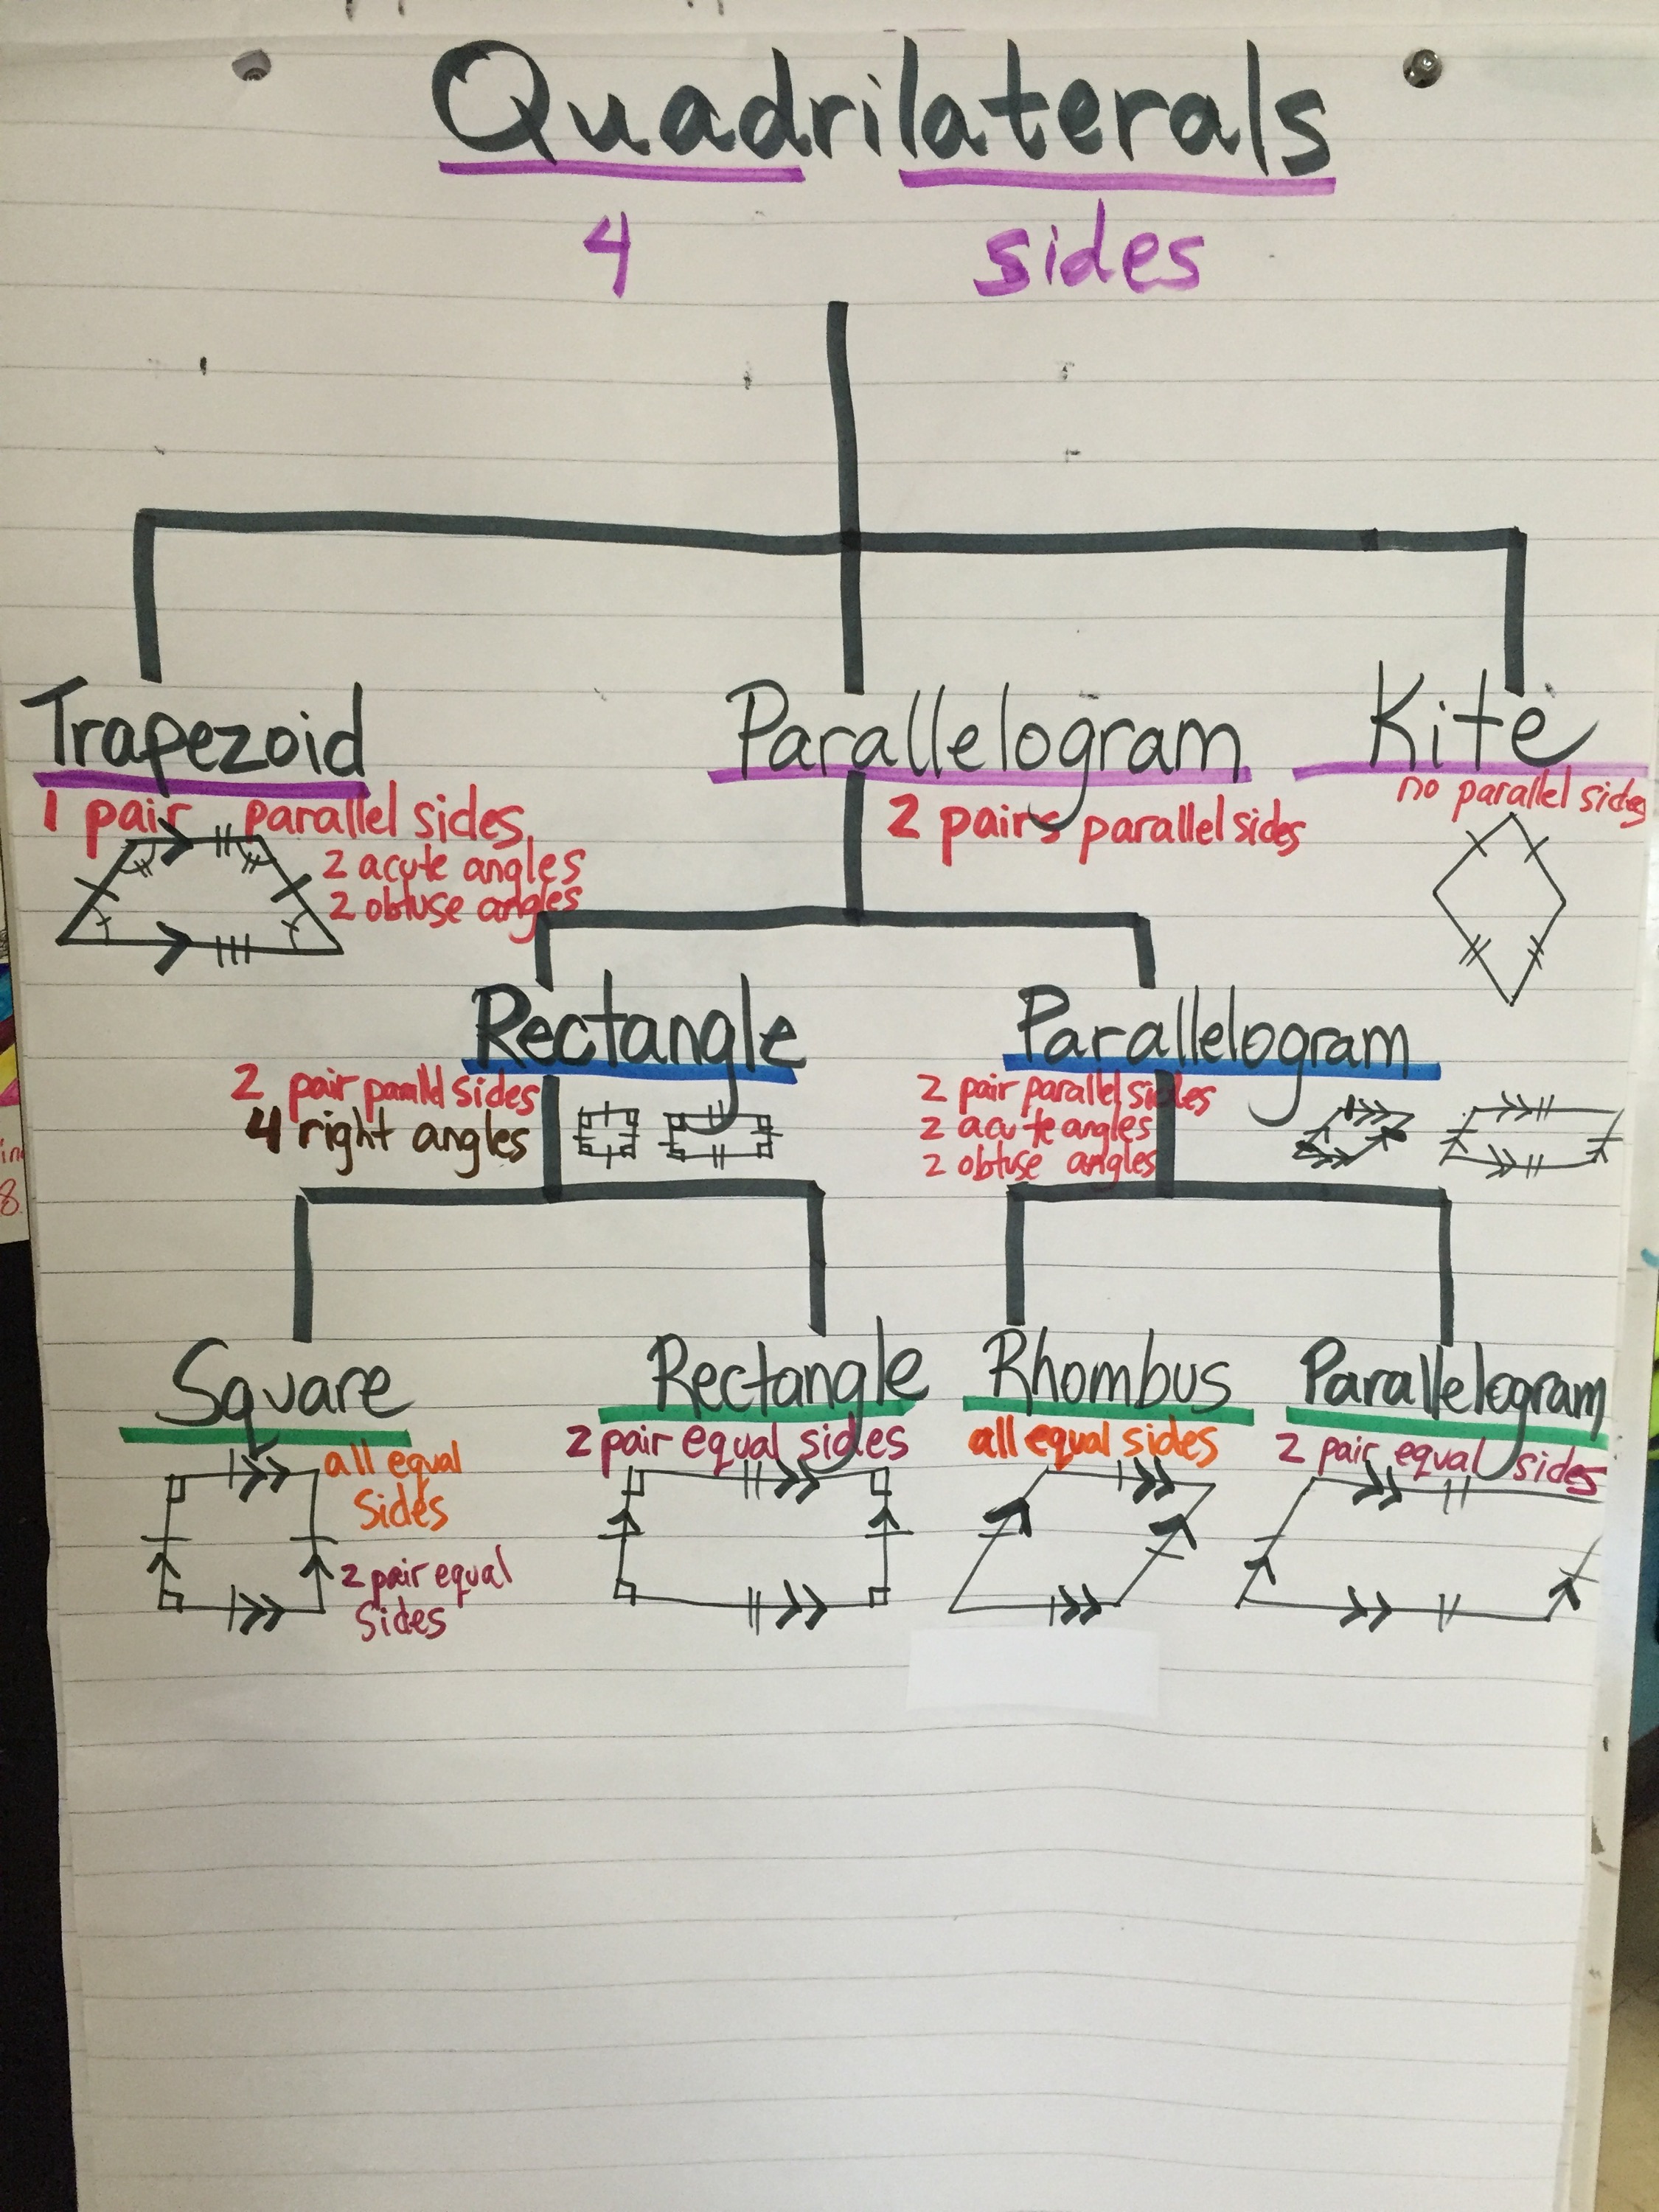 Quadrilaterals
4 sides
Trapezoid
1 pair parallel sides
2 acute angles
2 obtuse angles
Parallelogram
2 pairs parallel sides
Kite
no parallel sides
Rectangle
2 pair parallel sides
4 right angles
Parallelogram
2 pair parallel sides
2 acute angles
2 obtuse angles
Square
all equal
sides
2 pair equal
sides
Rectangle
2 pair equal sides
Rhombus
all equal sides
Parallelogram
2 pair equal sides
8